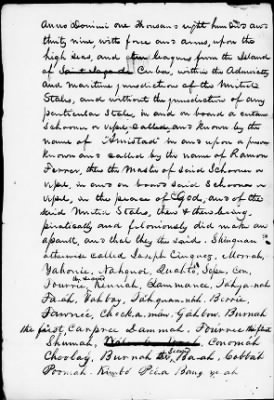 Anno Domini one thousand eight hundred and
thirty nine, with force and arms, upon the
high seas, and ten leagues from the Island
of Cuba, within the Admiralty
and maritime jurisdiction of the United
States, and without the jurisdiction of any
particular State, in and on board a certain
schooner or vessel called, and known by the
name of "Amistad" in and upon a person
known and called by the name of Ramon
Ferrer, then the Master of said Schooner or
vessel, in and on board said Schooner or
vessel, in the peace of God, and of the
said United States, then & there being
piratically and feloniously did make an
assault, and that they the said
otherwise called Joseph Cinquez, Morrah,
Yahonie, Nahquoi, Quatto, Sessi, Con,
Fourrie, the second Kinnah, Cammance, Tahyanah
Fa-ah, Yahboy, Fahquannah, Berrie,
Fawnie, Chockamaw, Gahbow, Burnah
the first, Carpree Dammah, Fourrie the first
Shumah, Conomah
Choolay, Burnah second, Ba-ah, Cabbah
Poomah, Kimbo Peea Bang-ye-ah